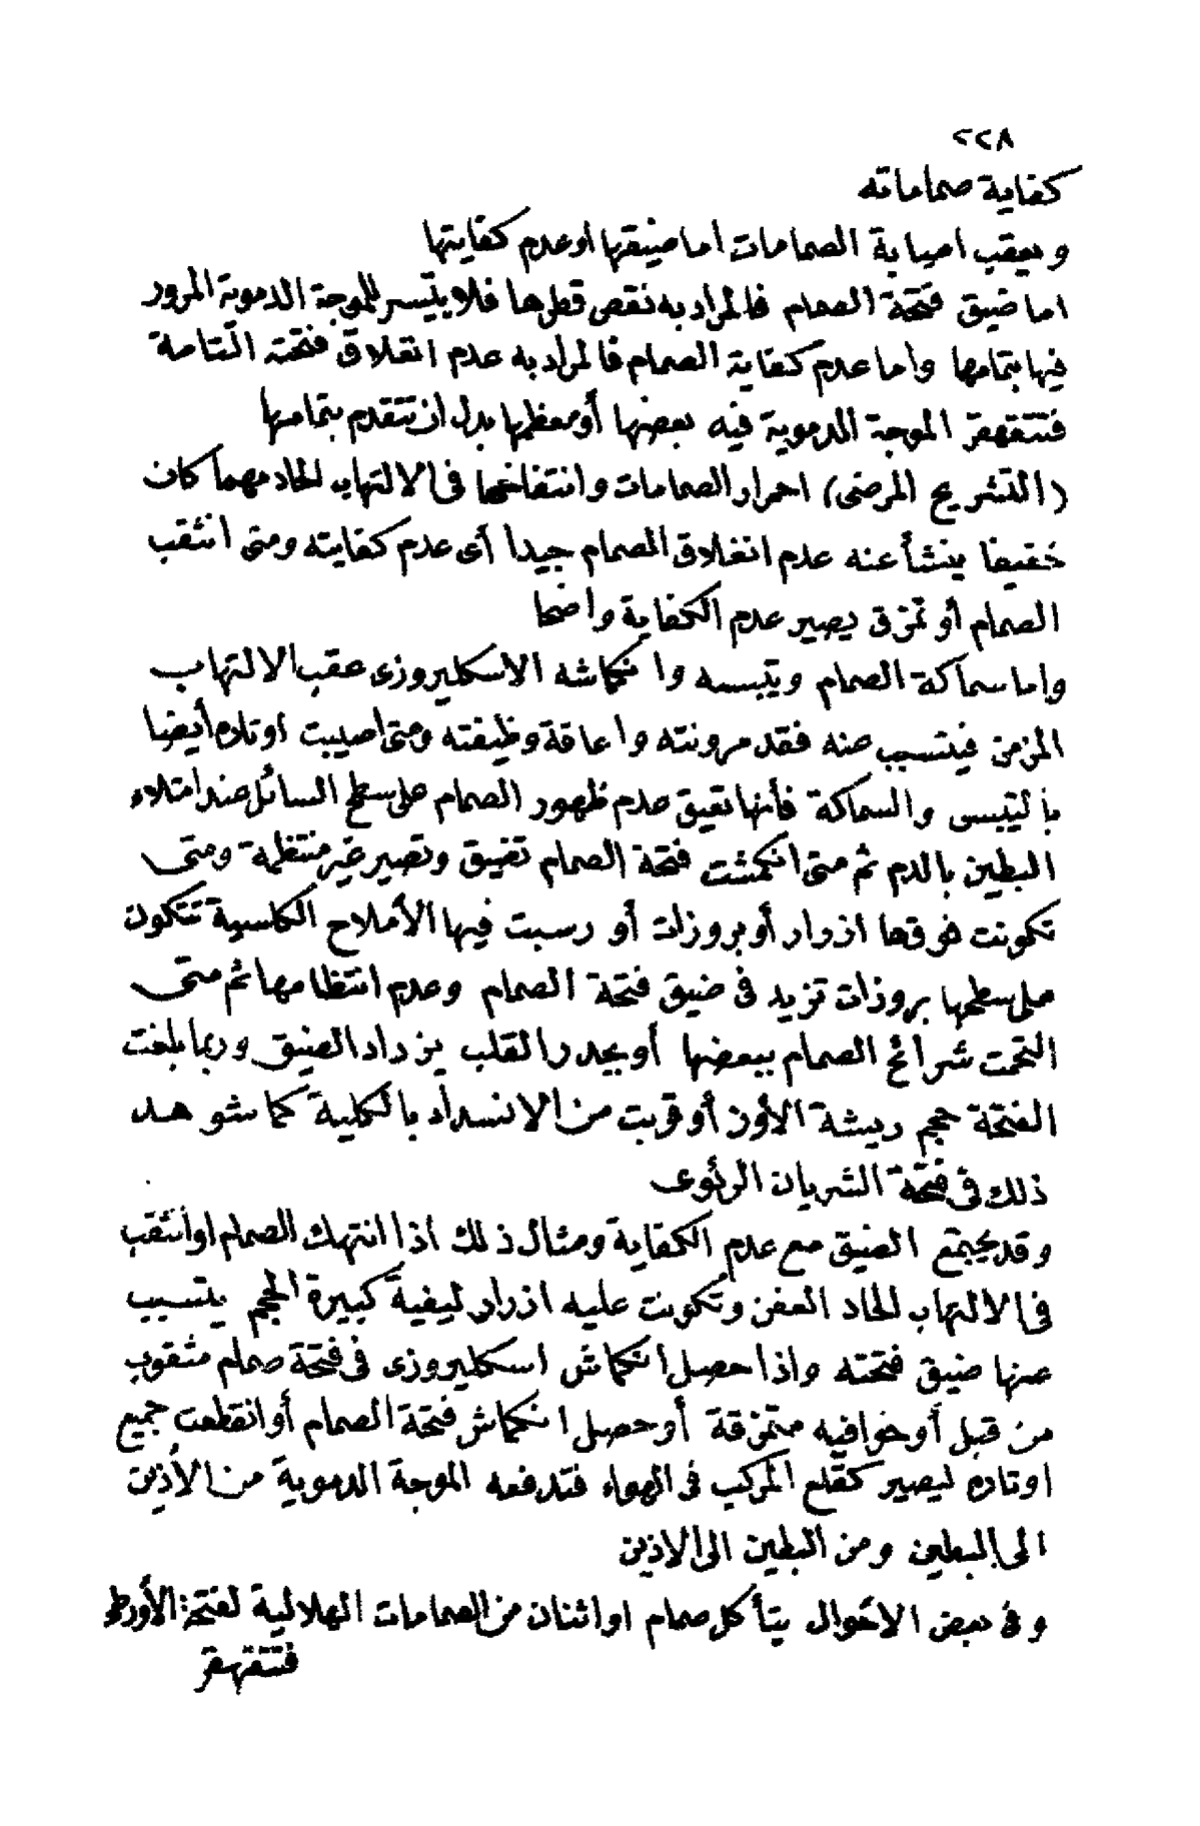 ٢٢٨
كفاية صماماته
ويعقب اصابة الصمامات اما ضيقها او عدم كفايتها
اما ضيق فتحة الصمام فالمراد به نقص قطرها فلا يتيسر للموجة الدموية المرور
فيها بتمامها واما عدم كفاية الصمام فالمراد به عدم انغلاق فتحته التامة
فتتقهقر الموجة الدموية فيه بعضها أو معظمها بدل ان تتقدم بتمامها
(التشريح المرضى) احمرار الصمامات وانتفاخها فى الالتهاب الحاد مهما كان
خفيفا ينشأ عنه عدم انغلاق الصمام جيدا أى عدم كفايته ومتى انثقب
الصمام أو تمزق يصير عدم الكفاية واضحا
واما سماكة الصمام ويتبسه وانكماشه الاسكليروزى عقب الالتهاب
المزمن فيتسبب عنه فقد مرونته واعاقة وظيفته ومتى اصيبت اوتاده أيضا
باليتبس والسماكة فأنها تعيق عدم ظهور الصمام على سطح السائل عند امتلاء
البطين بالدم ثم متى انكمشت فتحة الصمام تضيق وتصير غير منتظمة ومتى
تكونت فوقها ازرار أو بروزات أو رسبت فيها الأملاح الكلسية تتكون
على سطحها بروزات تزيد فى ضيق فتحة الصمام وعدم انتظامها ثم متى
التحمت شرائح الصمام ببعضها أو بجدر القلب يزداد الضيق وربما بلغت
الفتحة حجم ريشة الأوز أو قربت من الانسداد بالكلية كما شوهد
ذلك فى فتحة الشريان الرئوى
وقد يجتمع الضيق مع عدم الكفاية ومثال ذلك اذا انتهك الصمام او انثقب
فى الالتهاب الحاد العفن وتكونت عليه ازرار ليفية كبيرة الحجم يتسبب
عنها ضيق فتحته واذا حصل انكماش اسكليروزى فى فتحة صمام مثقوب
من قبل أو حوافيه متمزقة أو حصل انكماش فتحة الصمام أو انقطعت جميع
اوتاده ليصير كقلع المركب فى الهواء فتدفعه الموجة الدموية من الأذين
الى البطين ومن البطين الى الاذين
وفى بعض الاحوال يتأكل صمام او اثنان من الصمامات الهلالية لفتحة الأورطى
فتتقهقر